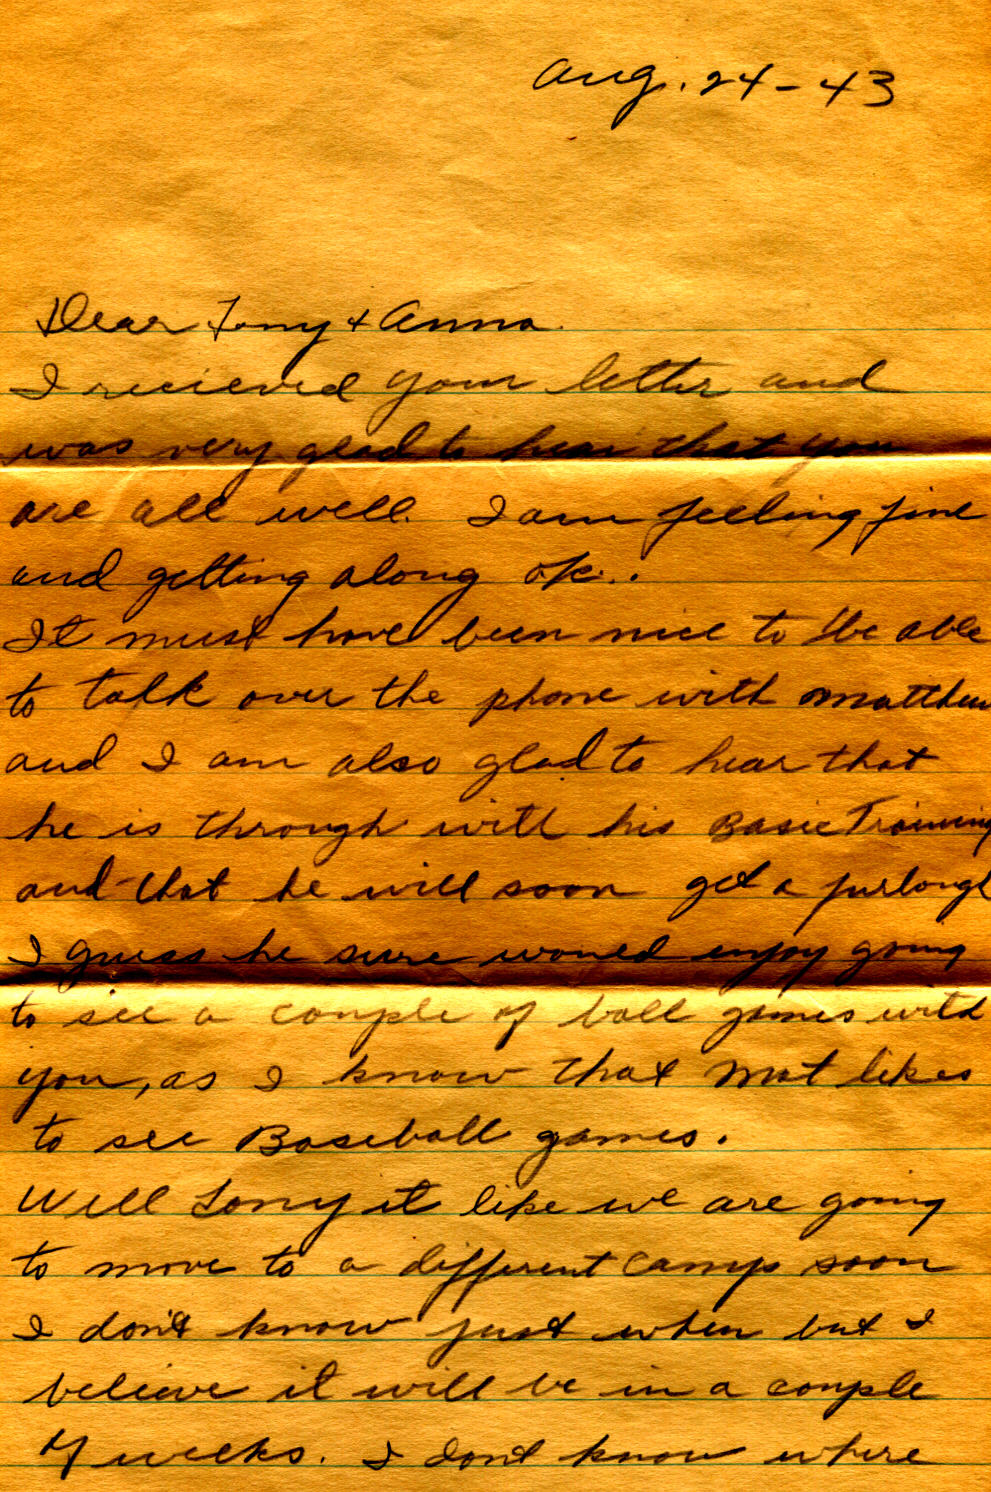 Aug. 24-43
Dear Tony & Anna
I recieved your letter and
was very glad to hear that you
are all well. I am feeling fine
and getting along ok..
It must have been nice to be able
to talk over the phone with Matthew
and I am also glad to hear that
he is through with his Basic Training
and that he will soon get a furlough
I guess he sure would enjoy going
to see a couple of ball games with
you, as I know that Mat likes
to see Baseball games.
Well Tony it like we are going
to move to a different camp soon
I don't know just when but I
believe it will be in a couple
of weeks. I dont know where